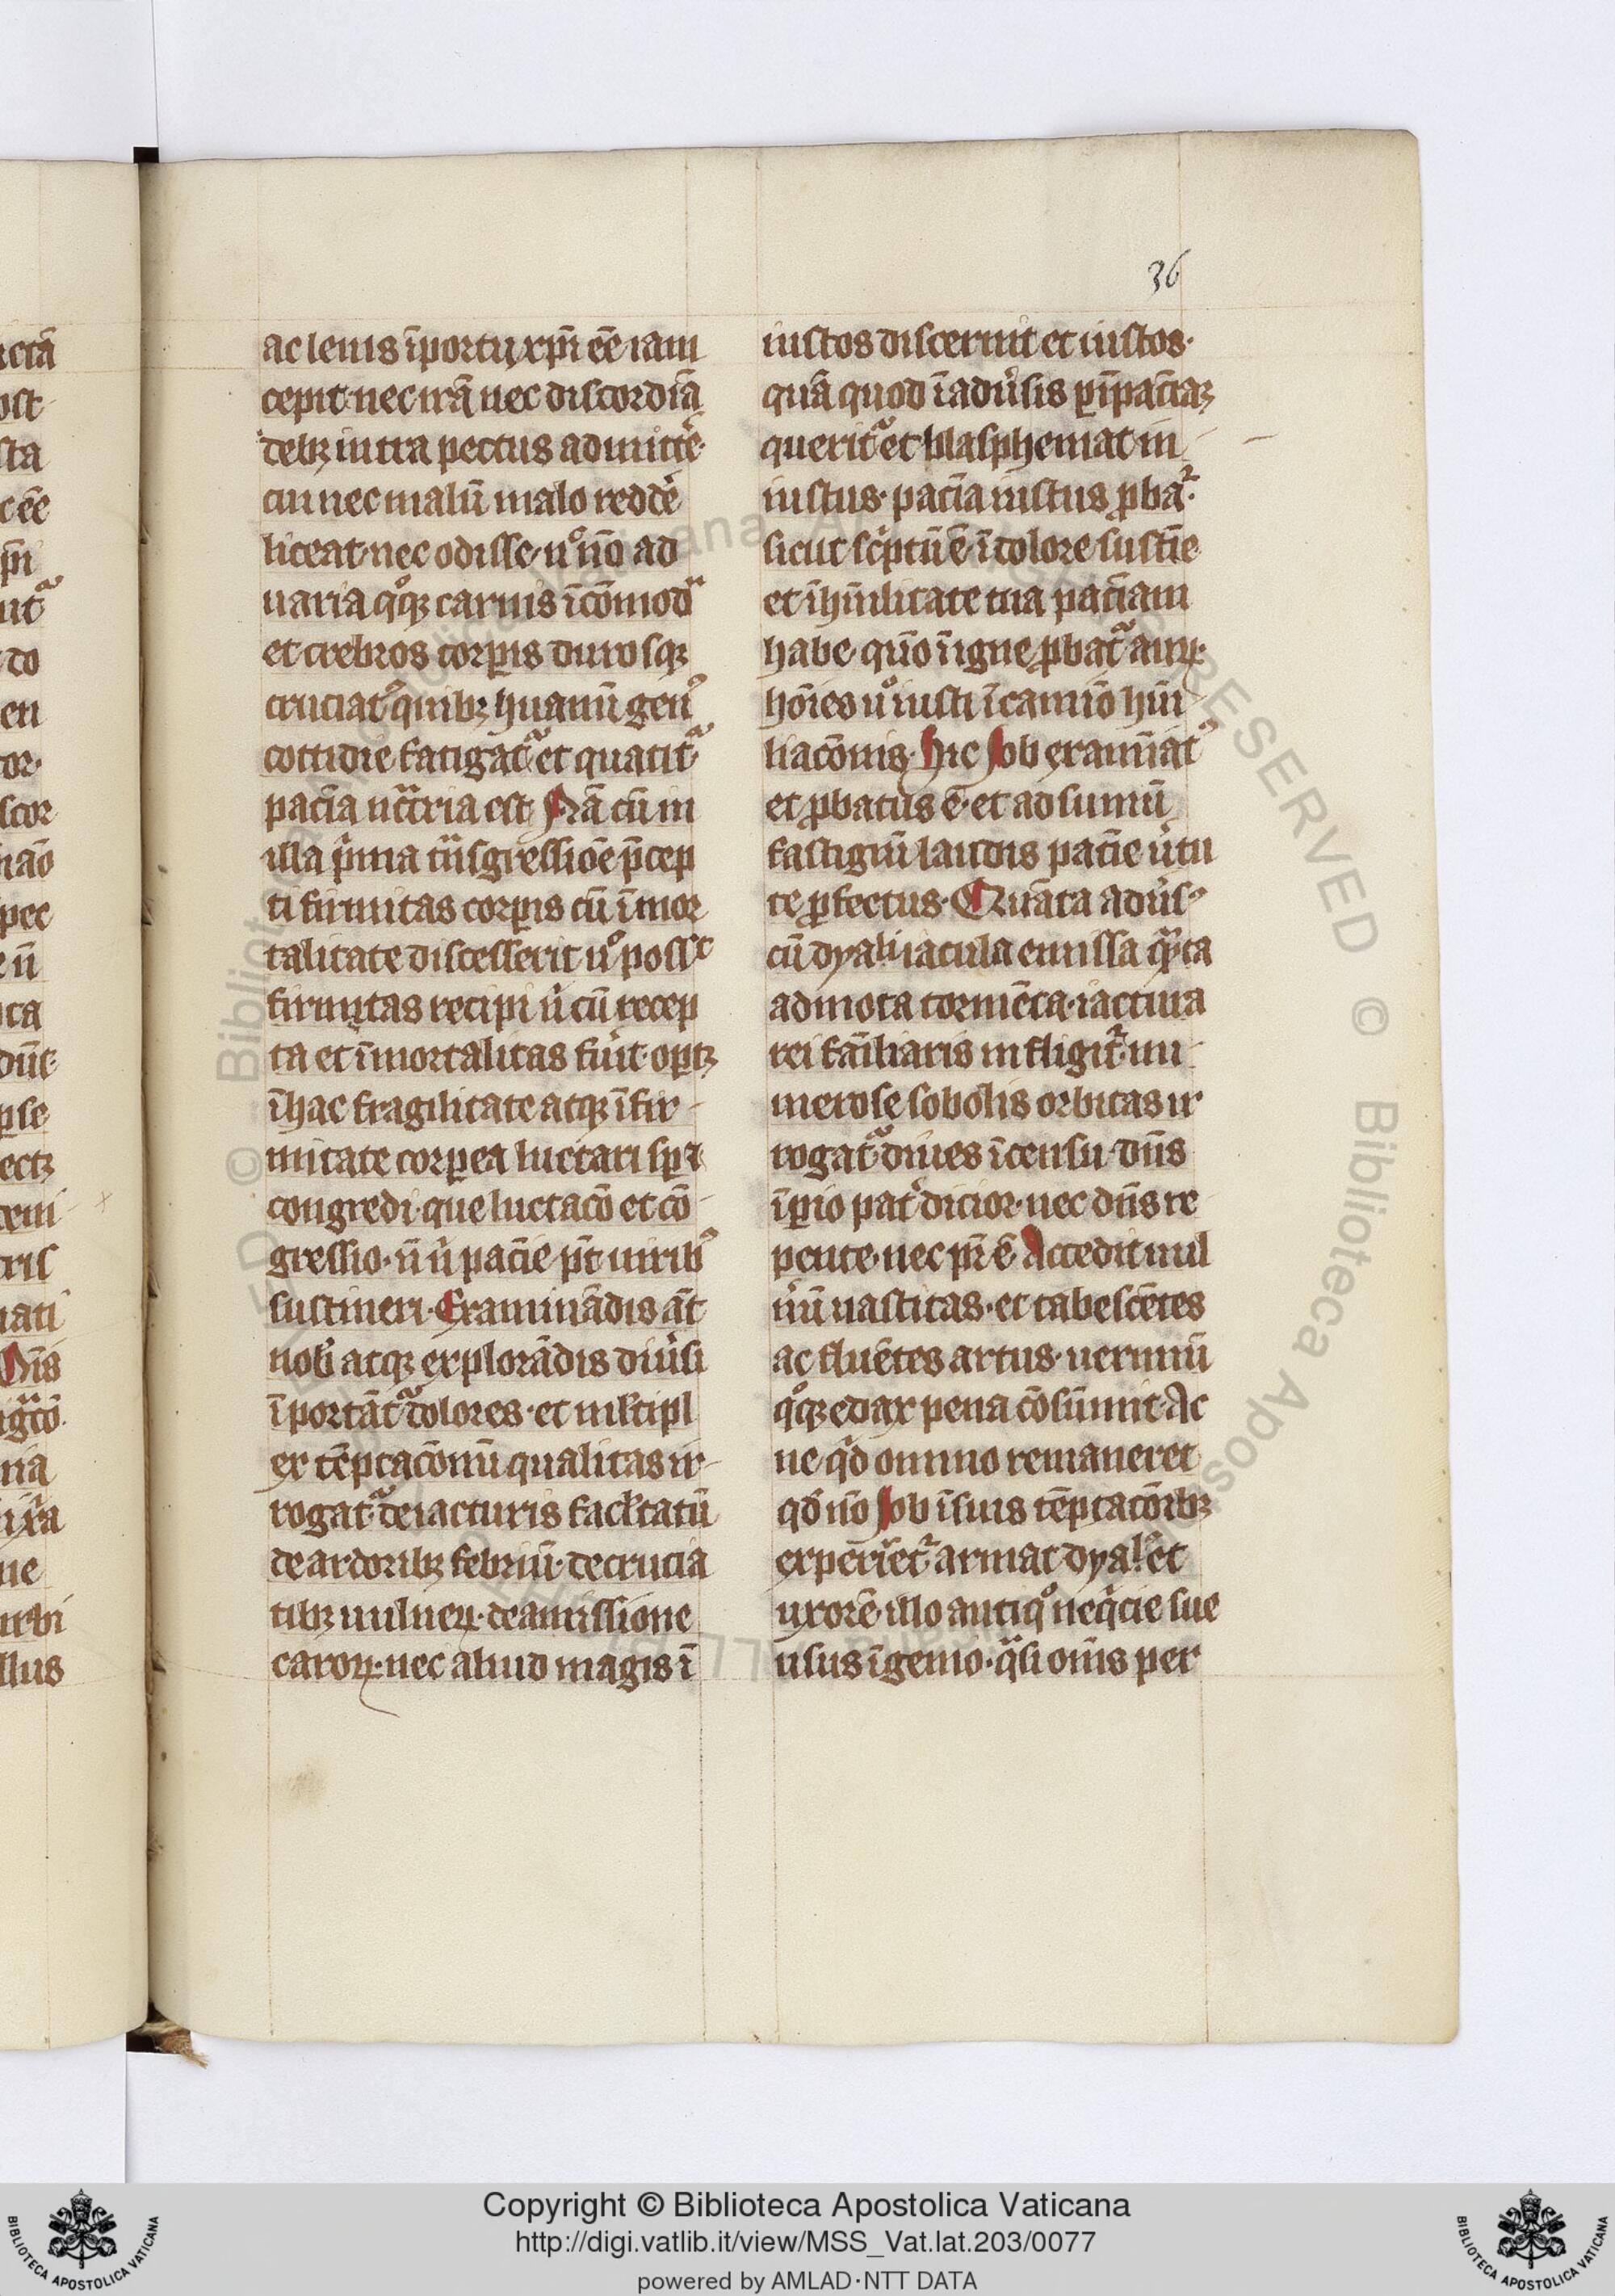 36
ac lenis ı̄portu xp̄i ēē iam
cepit· nec irā nec discordiā
debꝫ intra pectus admittẽ·
cui nec malū malo reddẽ
liceat· nec odisse· uͦ nō ad
uaria qͦqꝫ carnis ı̄cōmodᵃ
et crebros corꝑis durosqꝫ
cruciatꝰ quibꝫ huanū genꝰ
cottidie fatigat᷑ et quatit᷑
pacīa nc̄c̄ria est Nā cū in
illa p̍ma tn̄sgressiōe p̄cep
ti firmitas corꝑis cū ı̄mor
talitate discesserit uͦ possᵗ
firmitas recipi n̍ cū recep
ta et ı̄mortalitas fu̍it· oꝑtꝫ
ı̄ hac fragilitate atqꝫ ı̄fir-
mitate corꝑea luctari sꝑ ⁊
congredi· que luctacō et cō-
gressio· n̄ n̍ pacīe p̄t uiribꝰ
sustineri· Examinādis āt
nob̍ atqꝫ explorādis diu̍si
ı̄portāt᷑ dolores· et ml̄tipl
ex tēptacōnū qualitas ir-
rogat᷑ de iacturis facl̄tatū
de ardoribꝫ febriū· de crucia
tibꝫ uulneꝝ· de amissione
caroꝝ· nec aliud magis ı̄
iustos discernit et iustos·
quā quod ı̄ adu̍sis ꝑ ı̄pacīaꝫ
querit᷑ et blasphemat in
iustus· pacīa iustus ꝓbat᷑·
sicut sc̍ptū ē· ı̄ dolore sustīe
et ı̄ hūilitate tua pacīam
habe· qūo ı̄ igne ꝓbat᷑ auꝝ·
hōies uͦ iusti ı̄ camīo hūi
liacōnis· Hic Job examīatꝰ
et ꝓbatus ē· et ad sumū
fastigiū laudis pacīe u̍tu
te ꝓfectus· Quāta adu̍sꝰ
cū dyab̍li iacula emissa qᵃ̄ta
admota tormēta· iactura
rei fāiliaris infligit᷑· nu-
merose sobolis orbitas ir
rogat᷑ diues ı̄ censu dn̄s
ı̄ꝑio pat̍ dicior· nec dn̄s re-
pente· nec pr̄ ē· Accedit uul
n̍ū uastitas· et tabescētes
ac fluētes artus· uermiū
qͦqꝫ edax pena cōsūmit· Ac
ne qͥd omnino remaneret
qd̍ nō Job ı̄ suis tēptacōibꝫ
experiret᷑ armat dyabꝰ et
uxorē· illo antiqͦ neqͥcie sue
usus ı̄genio· qᵃsi om̄s per
Copyright © Biblioteca Apostolica Vaticana
http://digi.vatlib.it/view/MSS_Vat.lat.203/0077
powered by AMLAD·NTT DATA
BIBLIOTECA APOSTOLICA VATICANA
BIBLIOTECA APOSTOLICA VATICANA